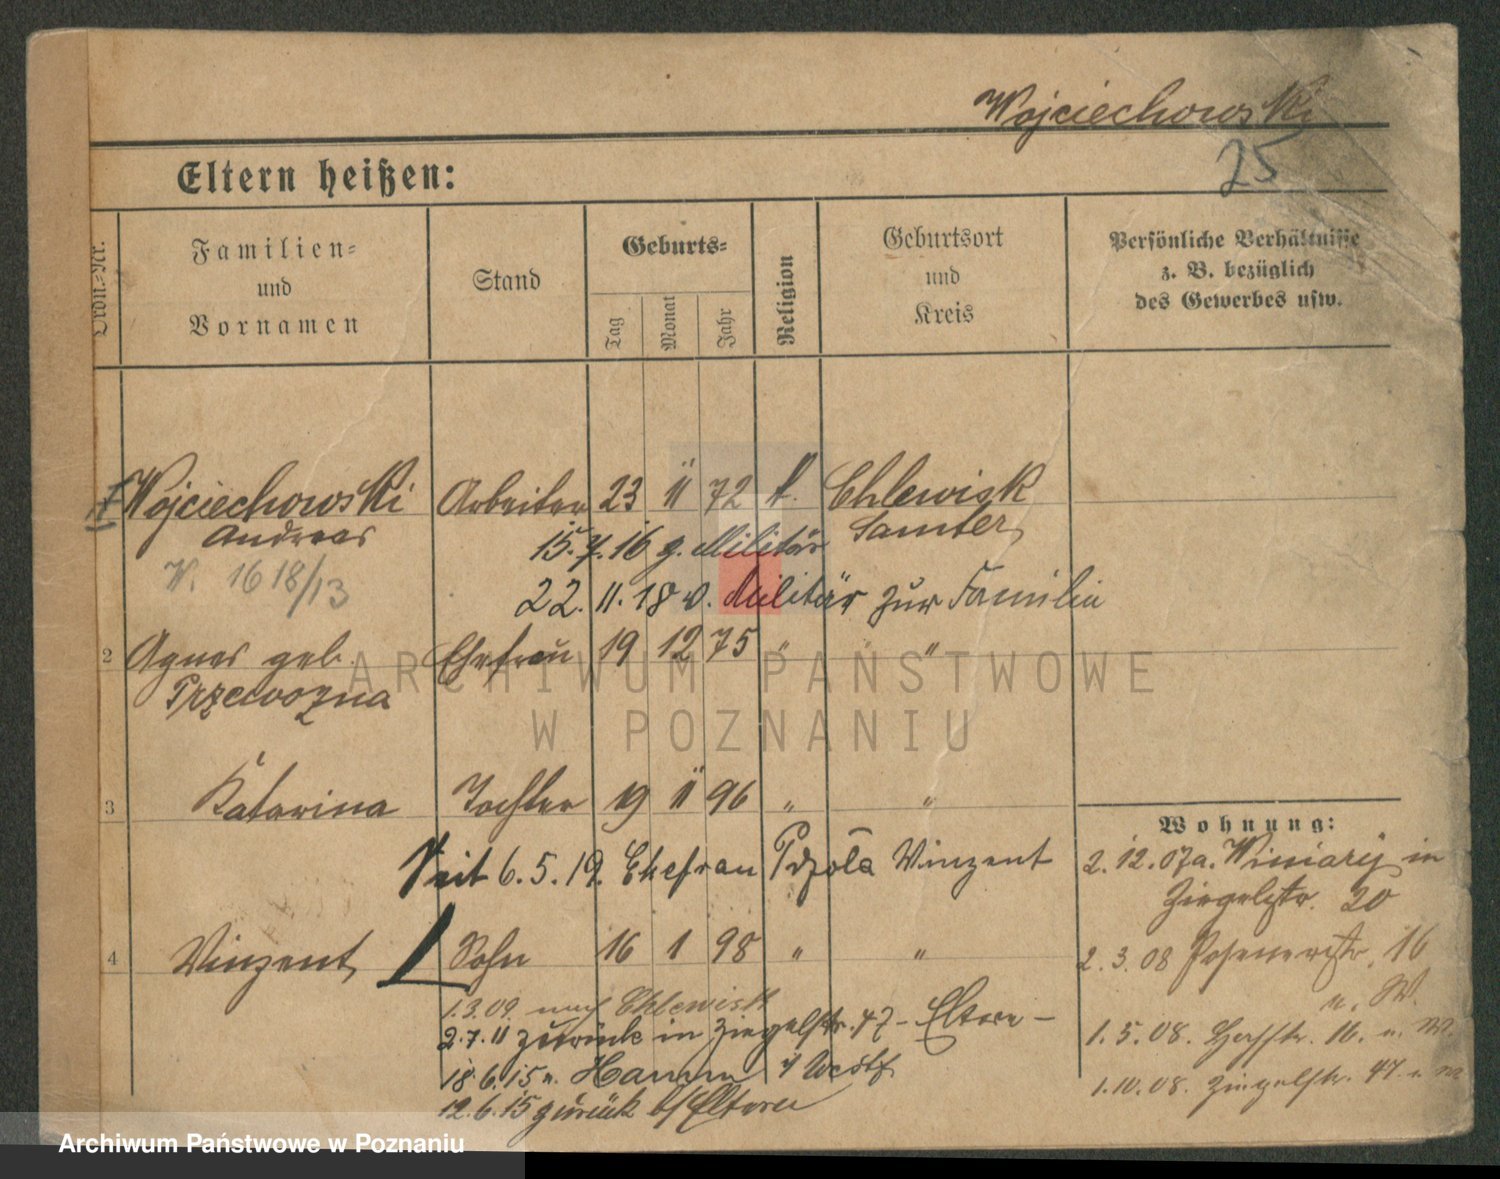 Wojciechowski
25
Eltern heißen:
Ordn.-Nr.
Familien- und Vornamen
Stand
Geburts-
Tag
Monat
Jahr
Religion
Geburtsort und Kreis
Persönliche Verhältnisse z. B. bezüglich des Gewerbes usw.
Wojciechowski Arbeiter 23 11 72 k. Chlewisk
Andreas Samter
15.7.16 z. Militär
1618/13
22.11.18 v. Militär zur Familie
2 Agnes geb. Ehefrau 19 12 75 " "
Przewozna
3 Katarina Tochter 19 11 96 " "
Seit 6.5.19. Ehefrau Vinzent
4 Vinzent Sohn 16 1 98 " "
1.3.09. nach Chlewisk
2.7.11 zurück in Ziegelstr. 47 - Eltern -
18.6.15 n. Hamm i/Westf
12.6.15 zurück b/Eltern
Wohnung:
2.12.07 a. Winiary in
Ziegelstr. 20
2.3.08 Posenerstr. 16
u. W.
1.5.08. 16. u. W.
1.10.08. Ziegelstr. 47. u.
ARCHIWUM PAŃSTWOWE
W POZNANIU
Archiwum Państwowe w Poznaniu